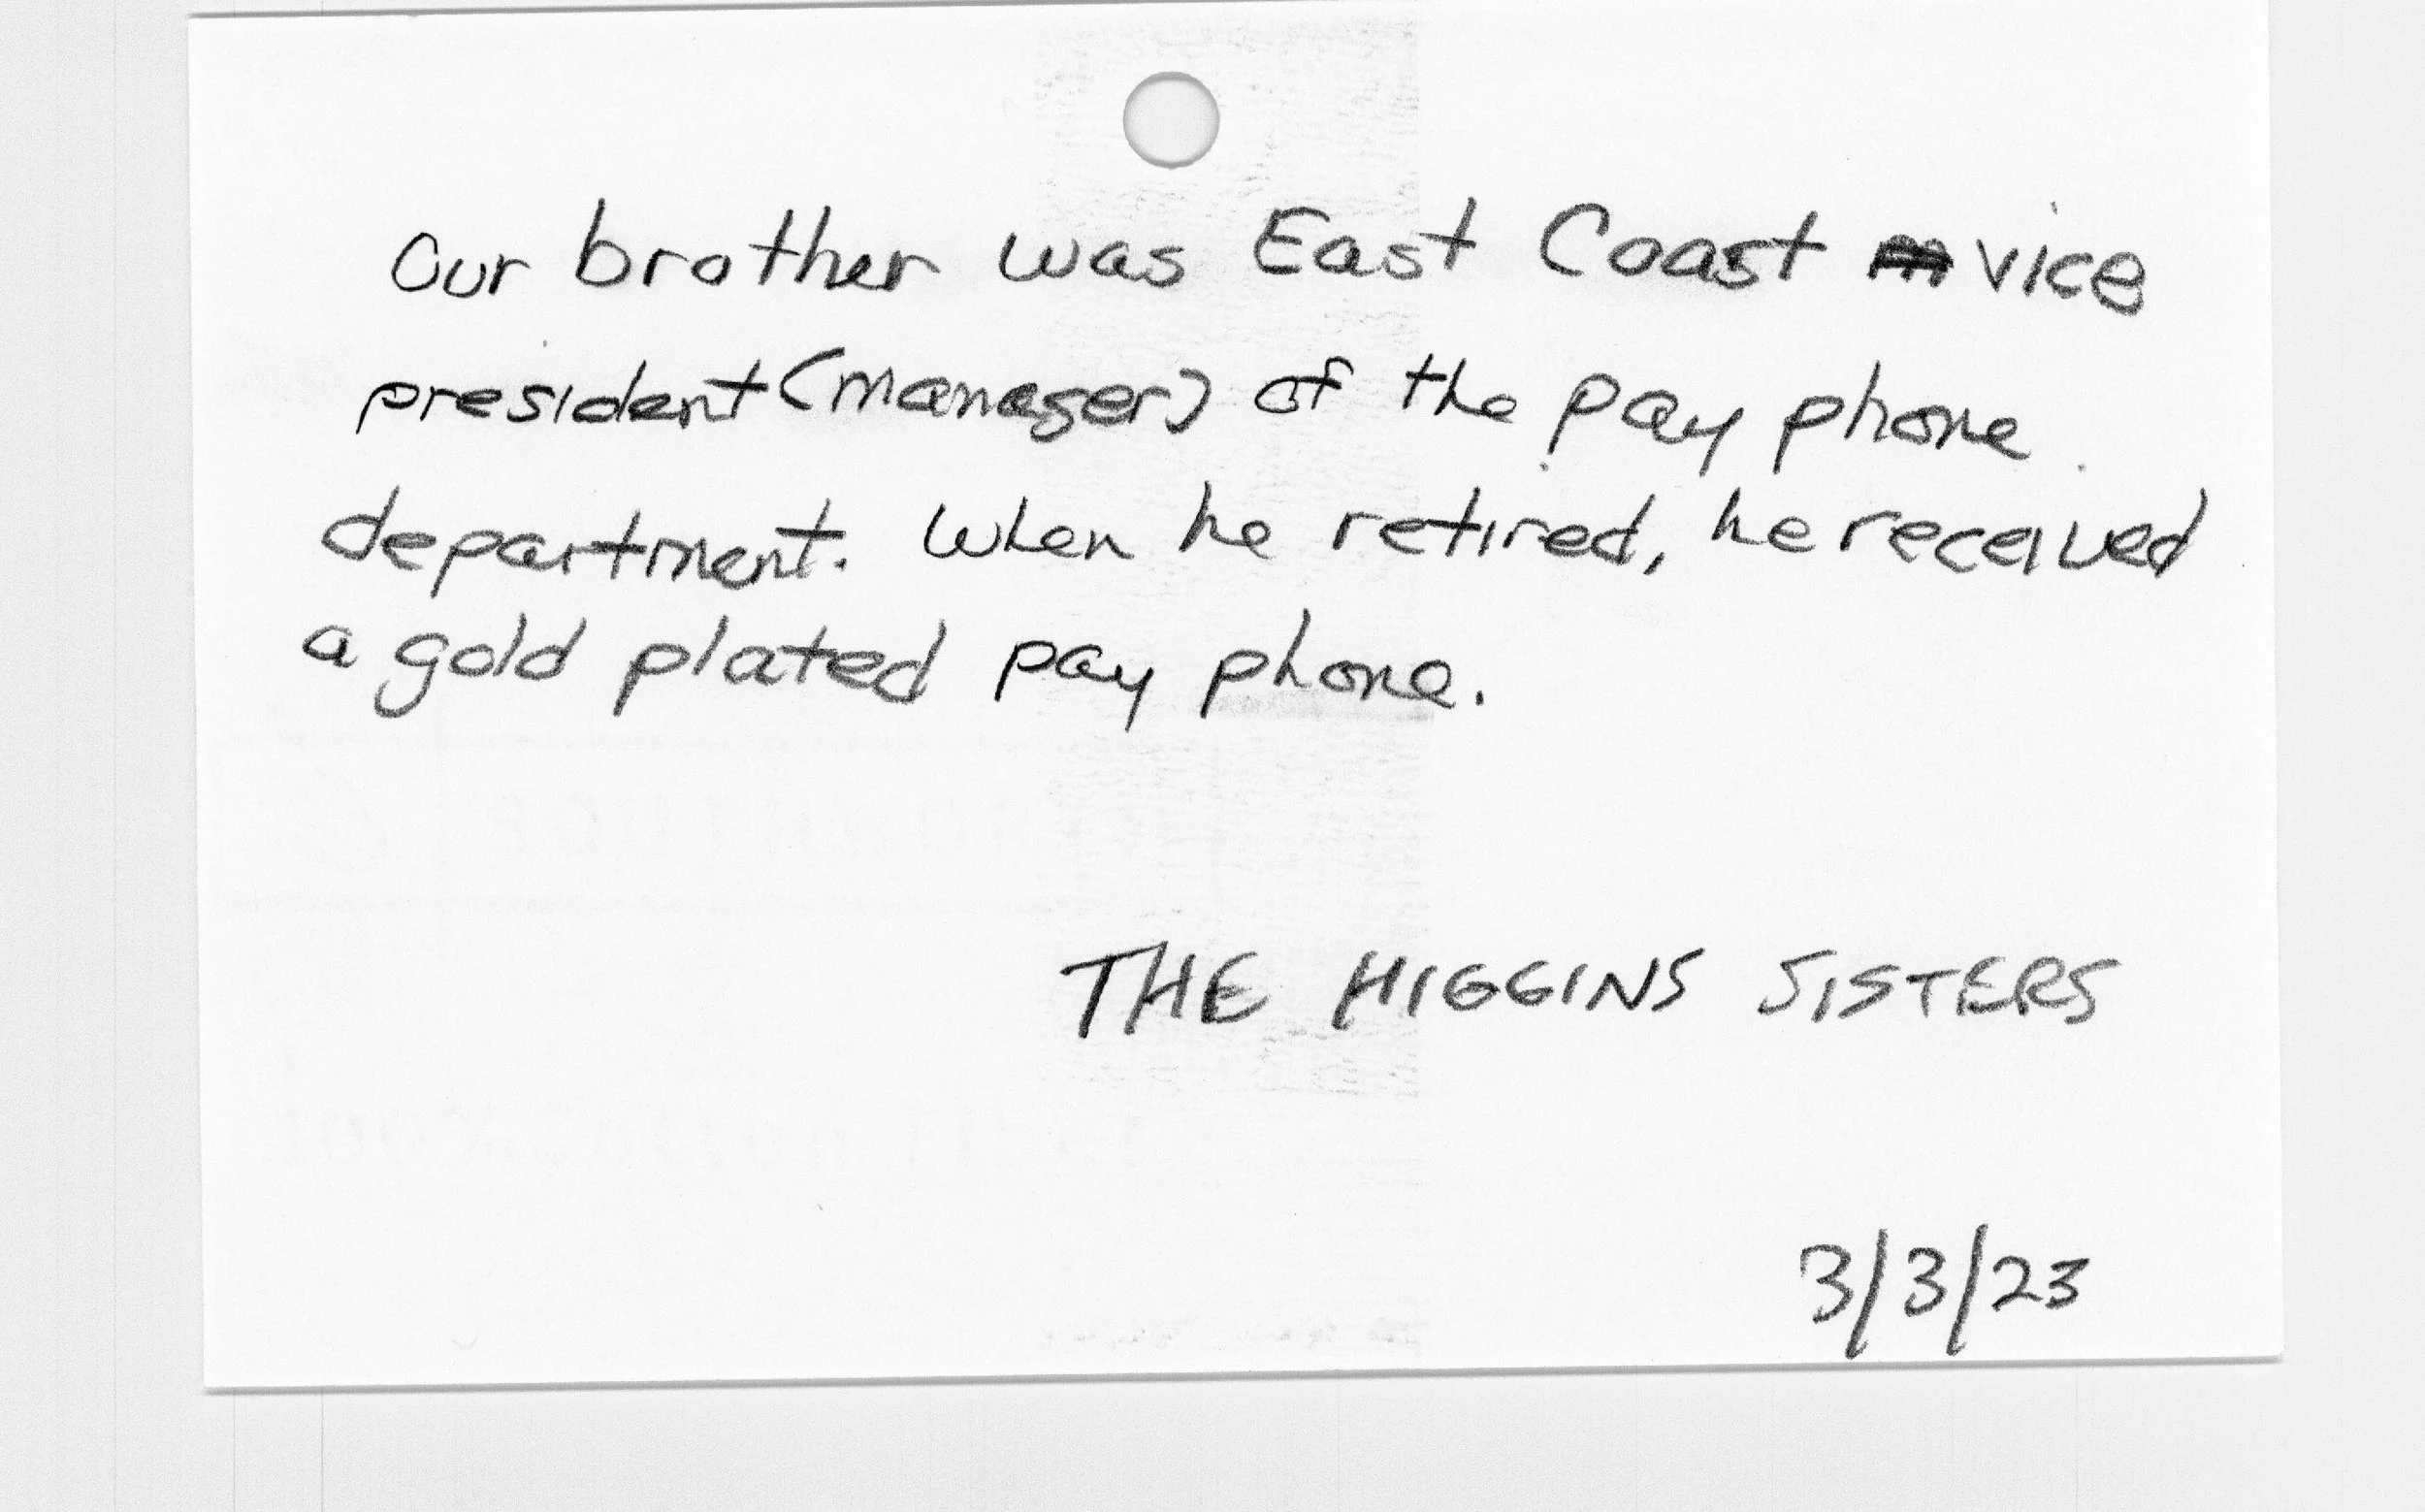 Our brother was East Coast vice
president (manager) of the pay phone
department. When he retired, he received
a gold plated pay phone.
THE HIGGINS SISTERS
3/3/23